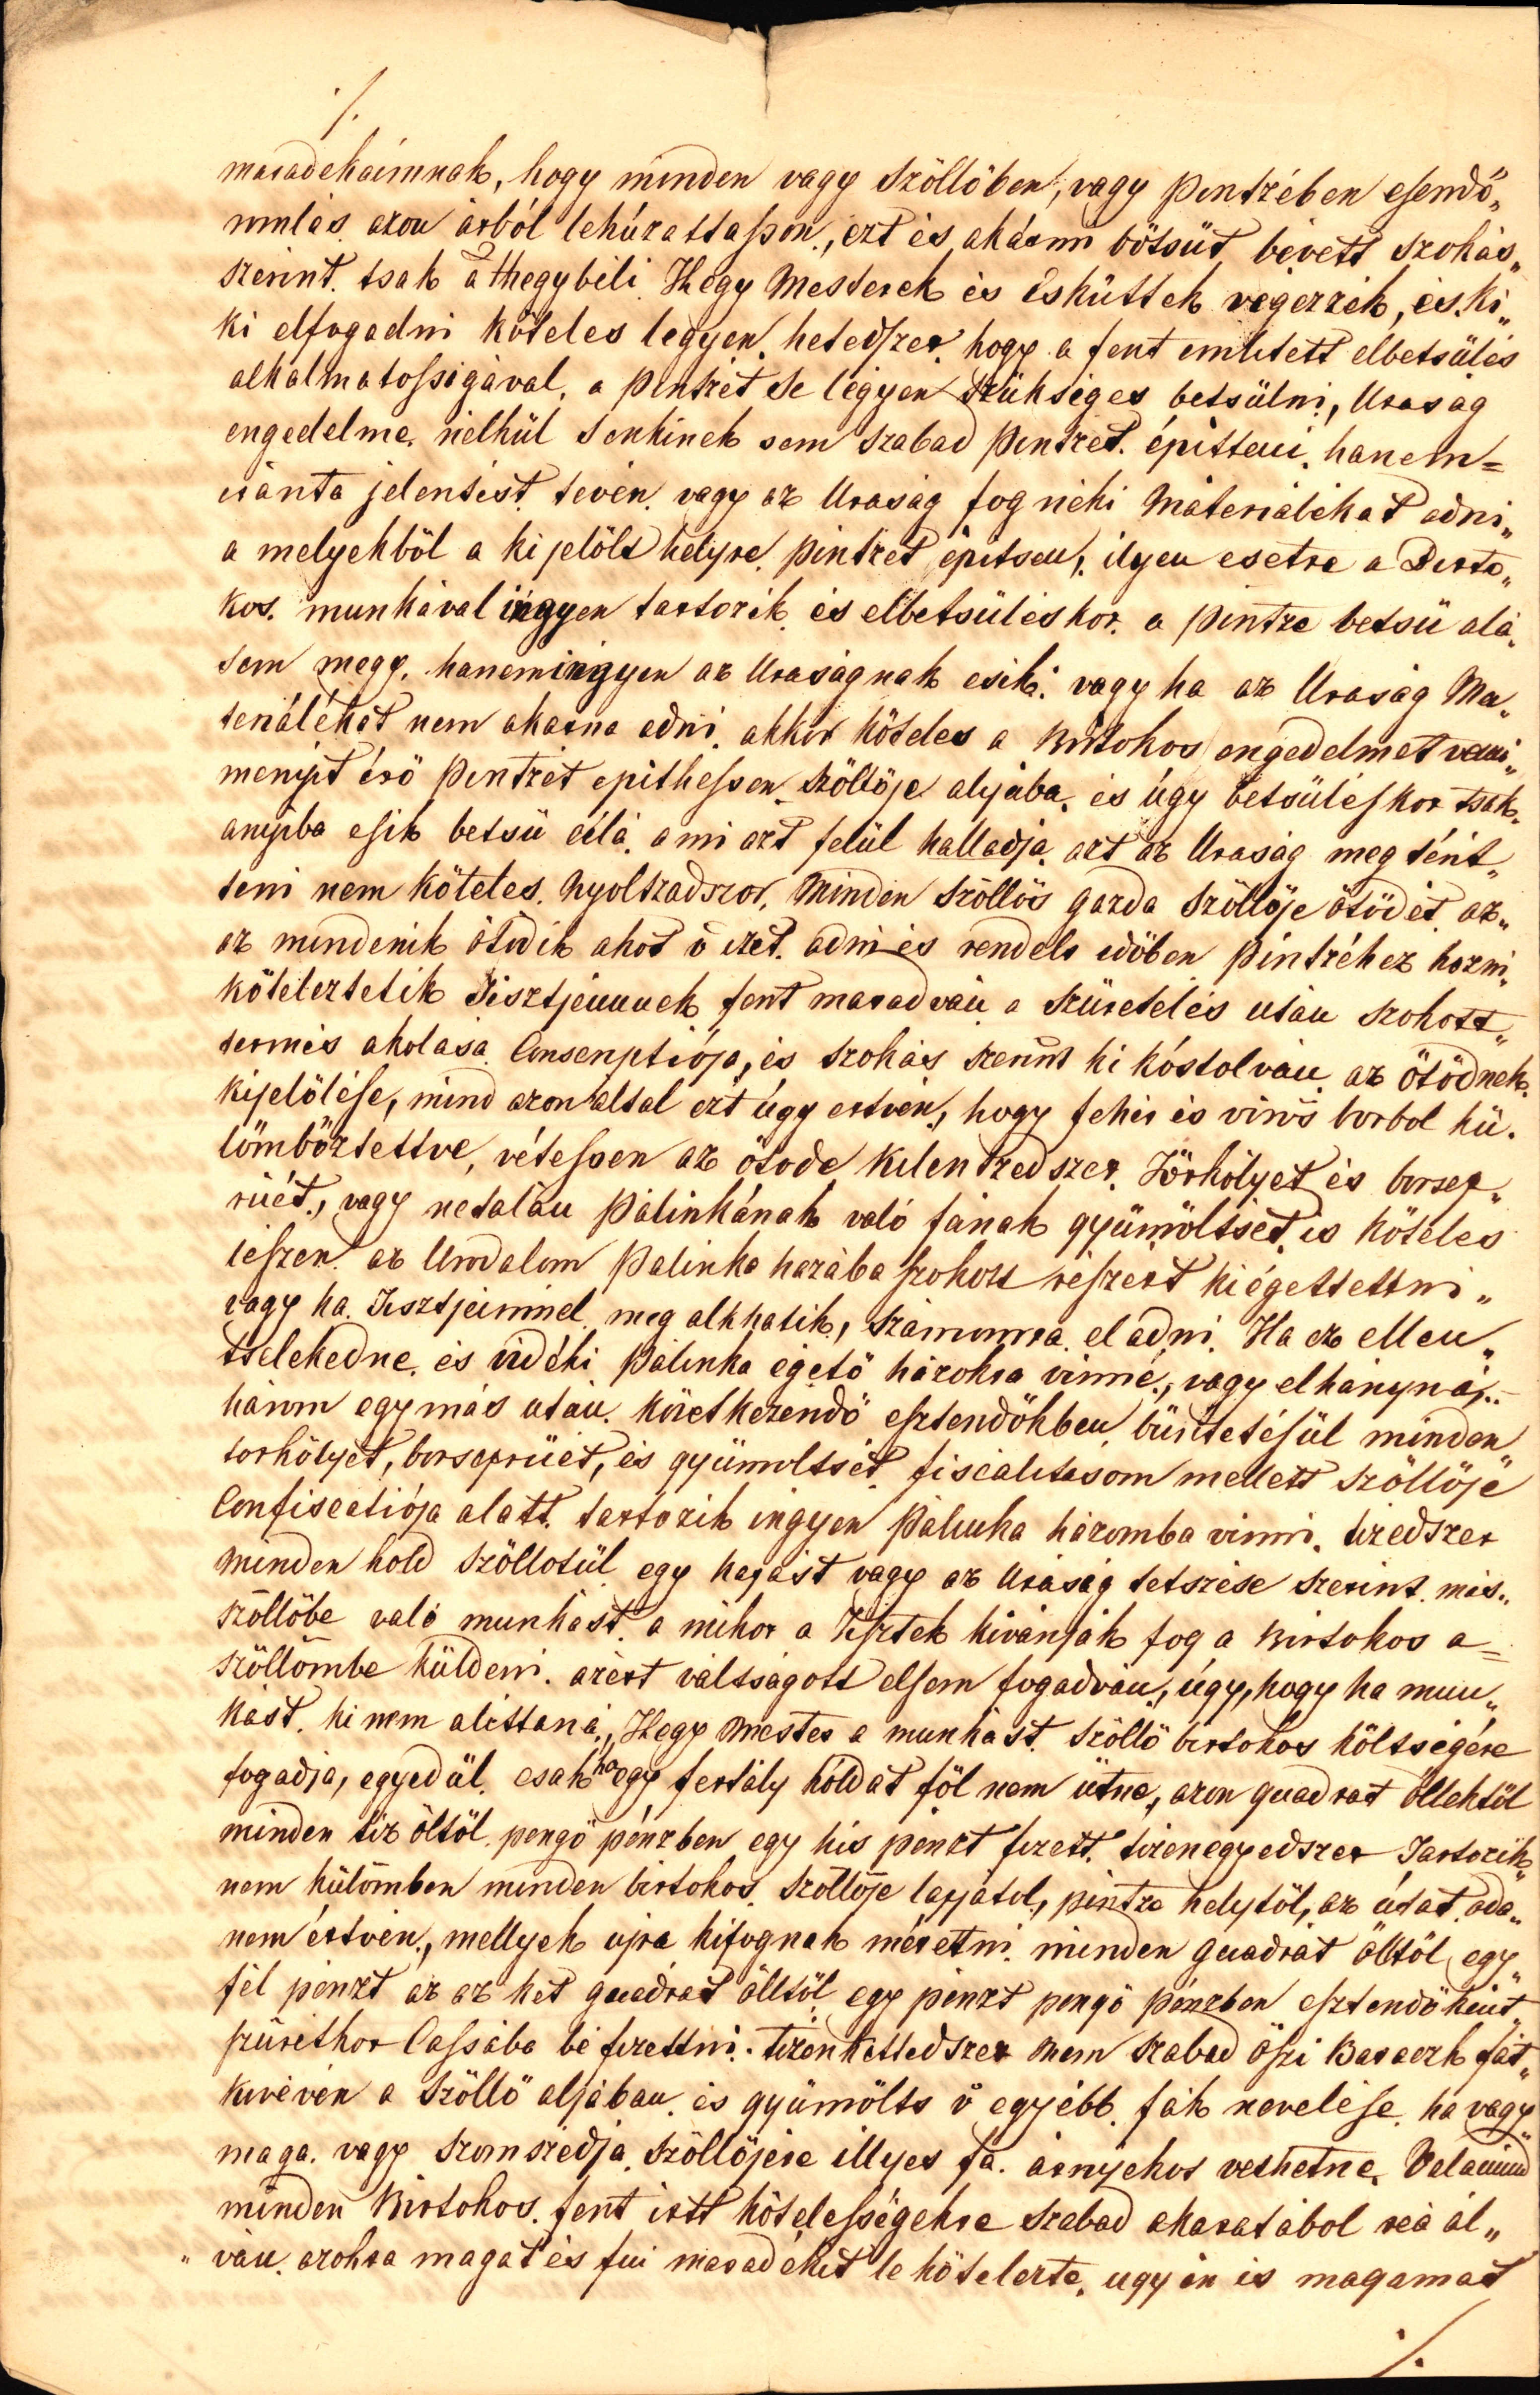 ./.
maradekaimnak, hogy minden vagy Szöllőben, vagy pintzében esendő„
mulás azon árból lehúzattasson, ezt és akármi bötsüt bévett szokás„
szerint tsak a Hegybéli Hegy Mesterek és Esküttek végezzék, és ki„
ki elfogadni köteles legyen. hetedszer hogy a fent emlitett elbetsülés
alkalmatosságával, a pintzét se légyen szükséges betsülni, Uraság
engedelme nélkül senkinek sem szabad pintzét építteni, hanem=
iránta jelentést tévén vagy az Uraság fog néki Máteriálékat adni„
a melyekböl a kijelölt helyre pintzét épitsen, ilyen esetre a Birto„
kos munkával ingyen tartozik és elbetsüléskor a pintze betsü alá„
sem megy, hanem ingyen az Uraságnak esik: vagy ha az Uraság Ma„
teriálékát nem akarna adni akkor köteles a Birtokos engedelmet venni„
menyit érö pintzét epithessen Szöllöje aljába, és úgy betsüléskor tsak„
anyiba esik betsü alá, a mi azt felül halladja, azt az Uraság meg térit„
teni nem köteles. Nyoltzadszor, Minden Szöllös gazda Szöllöje ötödét az„
az mindenik ötödik akót ö ezet adni és rendelt időben pintzéhez hozni„
köteleztetik Tisztjeimnek fent maradván a szüretelés után szokott„
termés akolása Conscriptiója, és szokás szerint ki kóstolván az ötödnek„
kijelölése, mind azon által ezt úgy értvén, hogy fehér és vörös borbol kü„
lömböztettve, vétessen az ötöde Kilentzedszer. Törkölyet és borsep„
rüét, vagy netalán pálinkának való fának gyümöltsét is köteles
leszen az Urodalom Palinka házába szokott részért kiégettettni„
vagy ha Tisztjeimmel meg alkhatik, számomra el adni. Ha ez ellen„
tselekedne és vidéki pálinka égető házokra vinné, vagy elhányná,
három egymás után következendö esztendökben büntetésül minden
törkölyét, borseprüét, és gyümoltsét fiscalitásom mellett Szöllöje
Confiscatiója alatt tartozik ingyen Palinka házomba vinni. tizedszer
Minden hold szöllotül egy kapást vagy az Uraság tetszése szerint más„
szöllöbe való munkást, a mikor a Tisztek kivánják fog a Birtokos a=
szöllömbe küldeni. azért váltságott elsem fogadván, úgy, hogy ha mun„
kást ki nem alittana, Hegy Mester a munkást Szöllö birtokos költségére
fogadja, egyedül csak ha egy fertály hóldat föl nem ütne, azon quadrat öllektöl
minden tiz öltöl pengö pénzben egy kis pénzt fizett. tizenegyedszer Tartozik„
nem külömben minden birtokos Szöllöje lapjátol, pintze helytöl, az útat oda„
nem értvén, mellyek ujra kifognak méretni minden quadrát ölltöl egy„
fél pénzt az az két quadrat ölltöl egy pénzt pengö pénzben esztendökint„
szüretkor Cassába bé fizettni. Tizenkettedszer Nem szabad öszi Baraczk fát„
kivévén a Szöllö aljában és gyümölts ö egyébb fák nevelése, ha vagy„
maga vagy szomszédja szöllöjére illyes fa árnyékot vethetne. Valamind
minden Birtokos fent irtt kötelességekre szabad akaratábol reá ál„
„ván azokra magát és fui maradékit le kötelezte, ugy én is magamat
./.